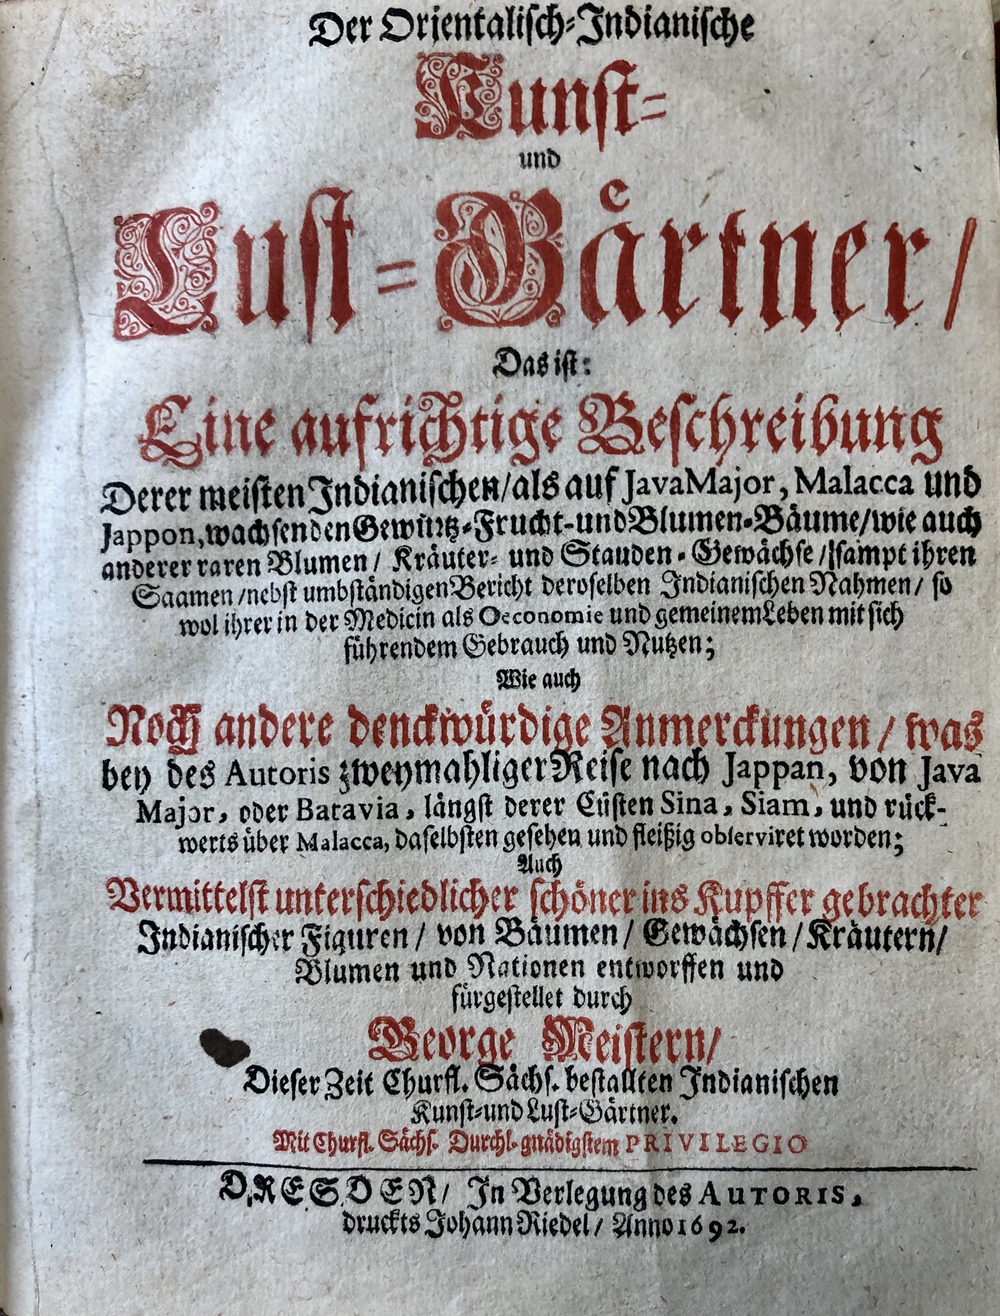 Der Orientalisch-Indianische
Kunst-
und
Lust-Gaͤrtner/
Das ist:
Eine aufrichtige Beschreibung
Derer meisten Indianischen/als auf Java Major, Malacca und
Jappon, wachsenden Gewuͤrtz-Frucht-und Blumen-Baͤume/wie auch
anderer raren Blumen/ Kraͤuter- und Stauden-Gewaͤchse/sampt ihren
Saamen/nebst umbstaͤndigen Bericht deroselben Indianischen Nahmen/ so
wol ihrer in der Medicin als Oeconomie und gemeinem Leben mit sich
fuͤhrendem Gebrauch und Nutzen;
Wie auch
Noch andere denckwuͤrdige Anmerckungen/ was
bey des Autoris zweymahliger Reise nach Jappan, von Java
Major, oder Batavia, laͤngst derer Cuͤsten Sina, Siam, und ruͤck-
werts uͤber Malacca, daselbsten gesehen und fleißig observiret worden;
Auch
Vermittelst unterschiedlicher schoͤner ins Kupffer gebrachter
Indianischer Figuren/ von Baͤumen/ Gewaͤchsen/Kraͤutern/
Blumen und Nationen entworffen und
fuͤrgestellet durch
George Meistern/
Dieser Zeit Churfl. Saͤchs. bestallten Indianischen
Kunst-und Lust-Gaͤrtner.
Mit Churfl. Saͤchs. Durchl. gnaͤdigstem PRIVILEGIO
DRESDEN/ In Verlegung des AUTORIS,
druckts Johann Riedel/ Anno 1692.